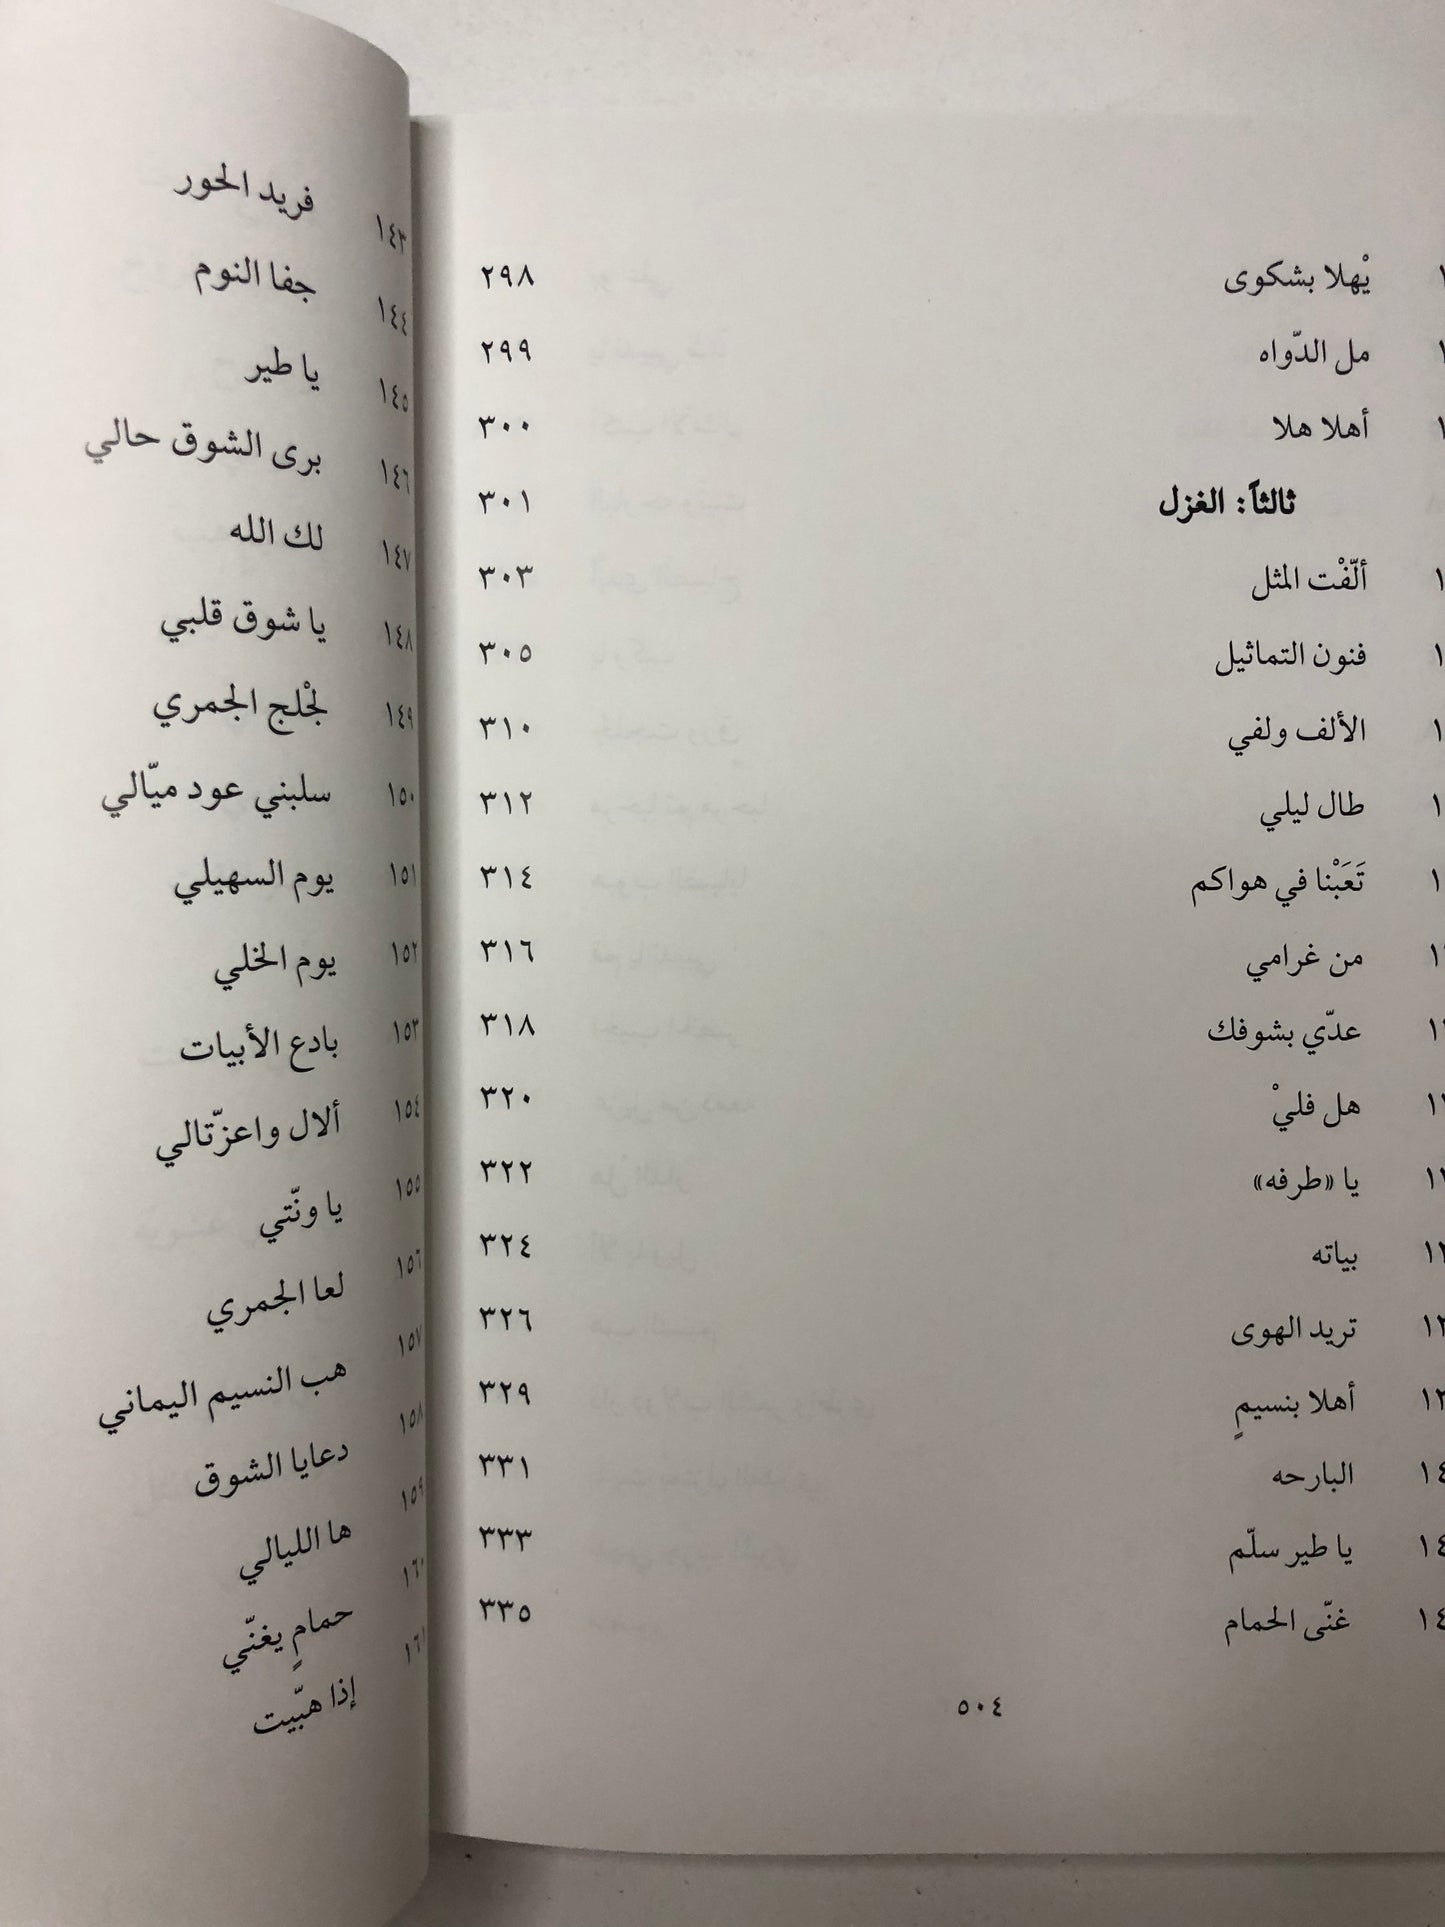 يْهلا بشكوى ٢٩٨
مل الدّواه ٢٩٩
أهلا هلا ٣٠٠
ثالثاً: الغزل ٣٠١
ألّفْت المثل ٣٠٣
فنون التماثيل ٣٠٥
الألف ولفي ٣١٠
طال ليلي ٣١٢
تَعَبْنا في هواكم ٣١٤
من غرامي ٣١٦
عدّي بشوفك ٣١٨
هل فليْ ٣٢٠
يا «طرفه» ٣٢٢
بياته ٣٢٤
تريد الهوى ٣٢٦
أهلا بنسيمٍ ٣٢٩
البارحه ٣٣١
يا طير سلّم ٣٣٣
غنّى الحمام ٣٣٥
٥٠٤
١٤٣ فريد الحور
١٤٤ جفا النوم
١٤٥ يا طير
١٤٦ برى الشوق حالي
١٤٧ لك الله
١٤٨ يا شوق قلبي
١٤٩ لجْلج الجمري
١٥٠ سلبني عود ميّالي
١٥١ يوم السهيلي
١٥٢ يوم الخلي
١٥٣ بادع الأبيات
١٥٤ ألال واعزّتالي
١٥٥ يا ونّتي
١٥٦ لعا الجمري
١٥٧ هب النسيم اليماني
١٥٨ دعايا الشوق
١٥٩ ها الليالي
١٦٠ حمامٍ يغنّي
١٦١ إذا هبّيت